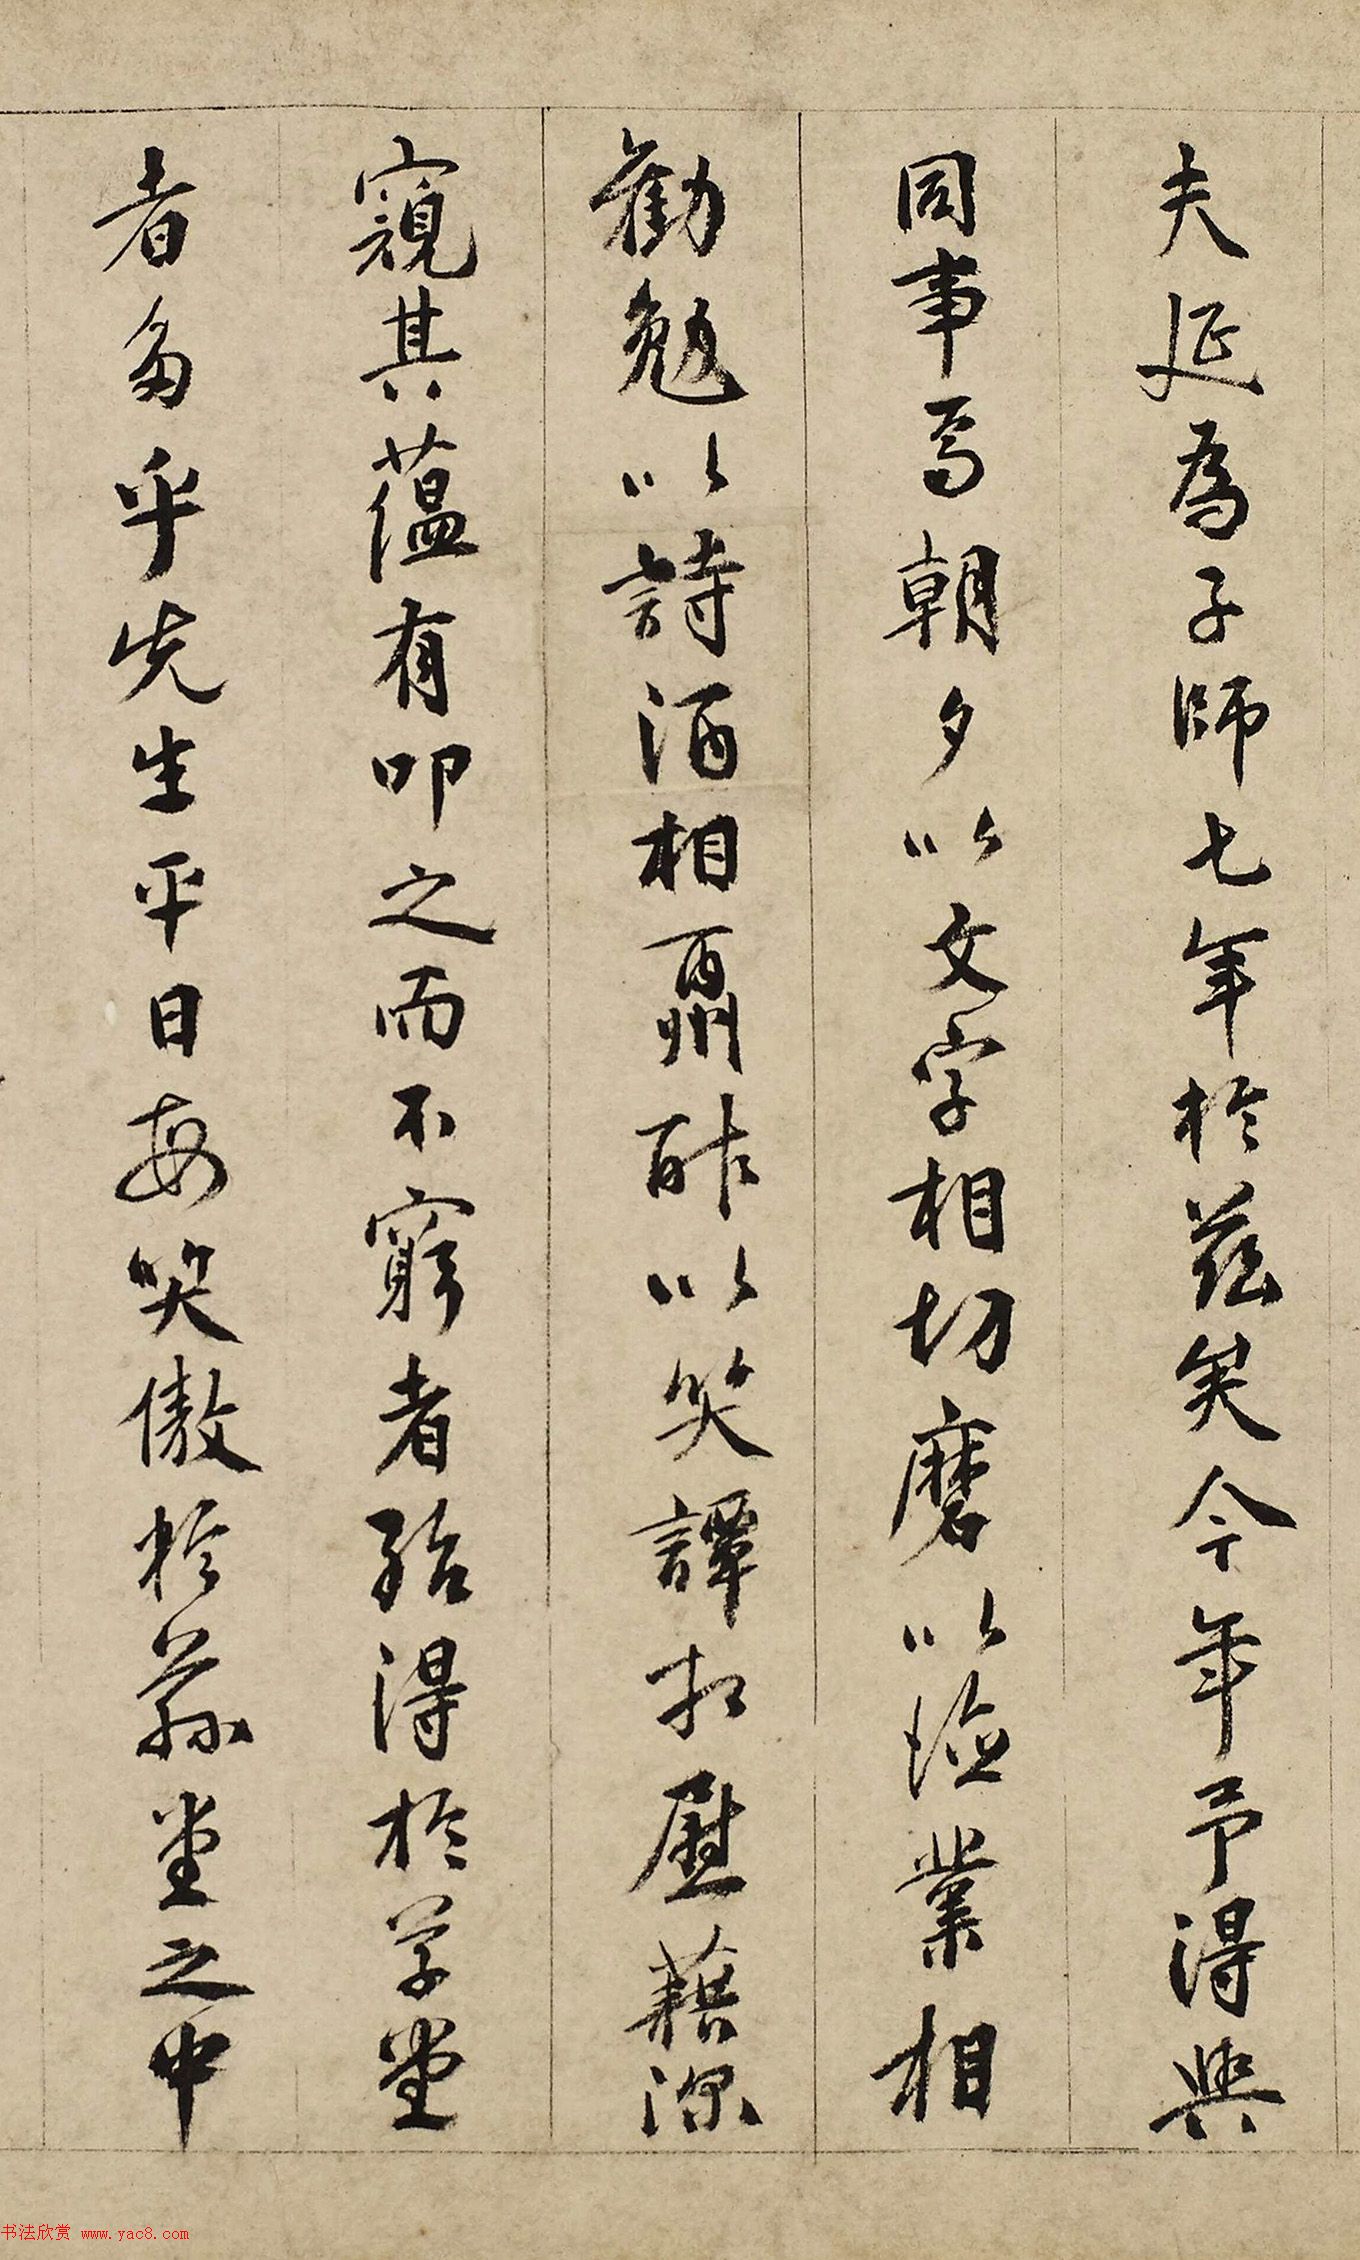 夫延為子師七年於茲矣今年予得與
同事焉朝夕以文字相切磨以德業相
勸勉以詩酒相酬酢以笑譚相慰藉深
窺其蘊有叩之而不窮者殆得於學堂
者多乎先生平日每笑傲於蓀堂之中
书法欣赏 www.yac8.com